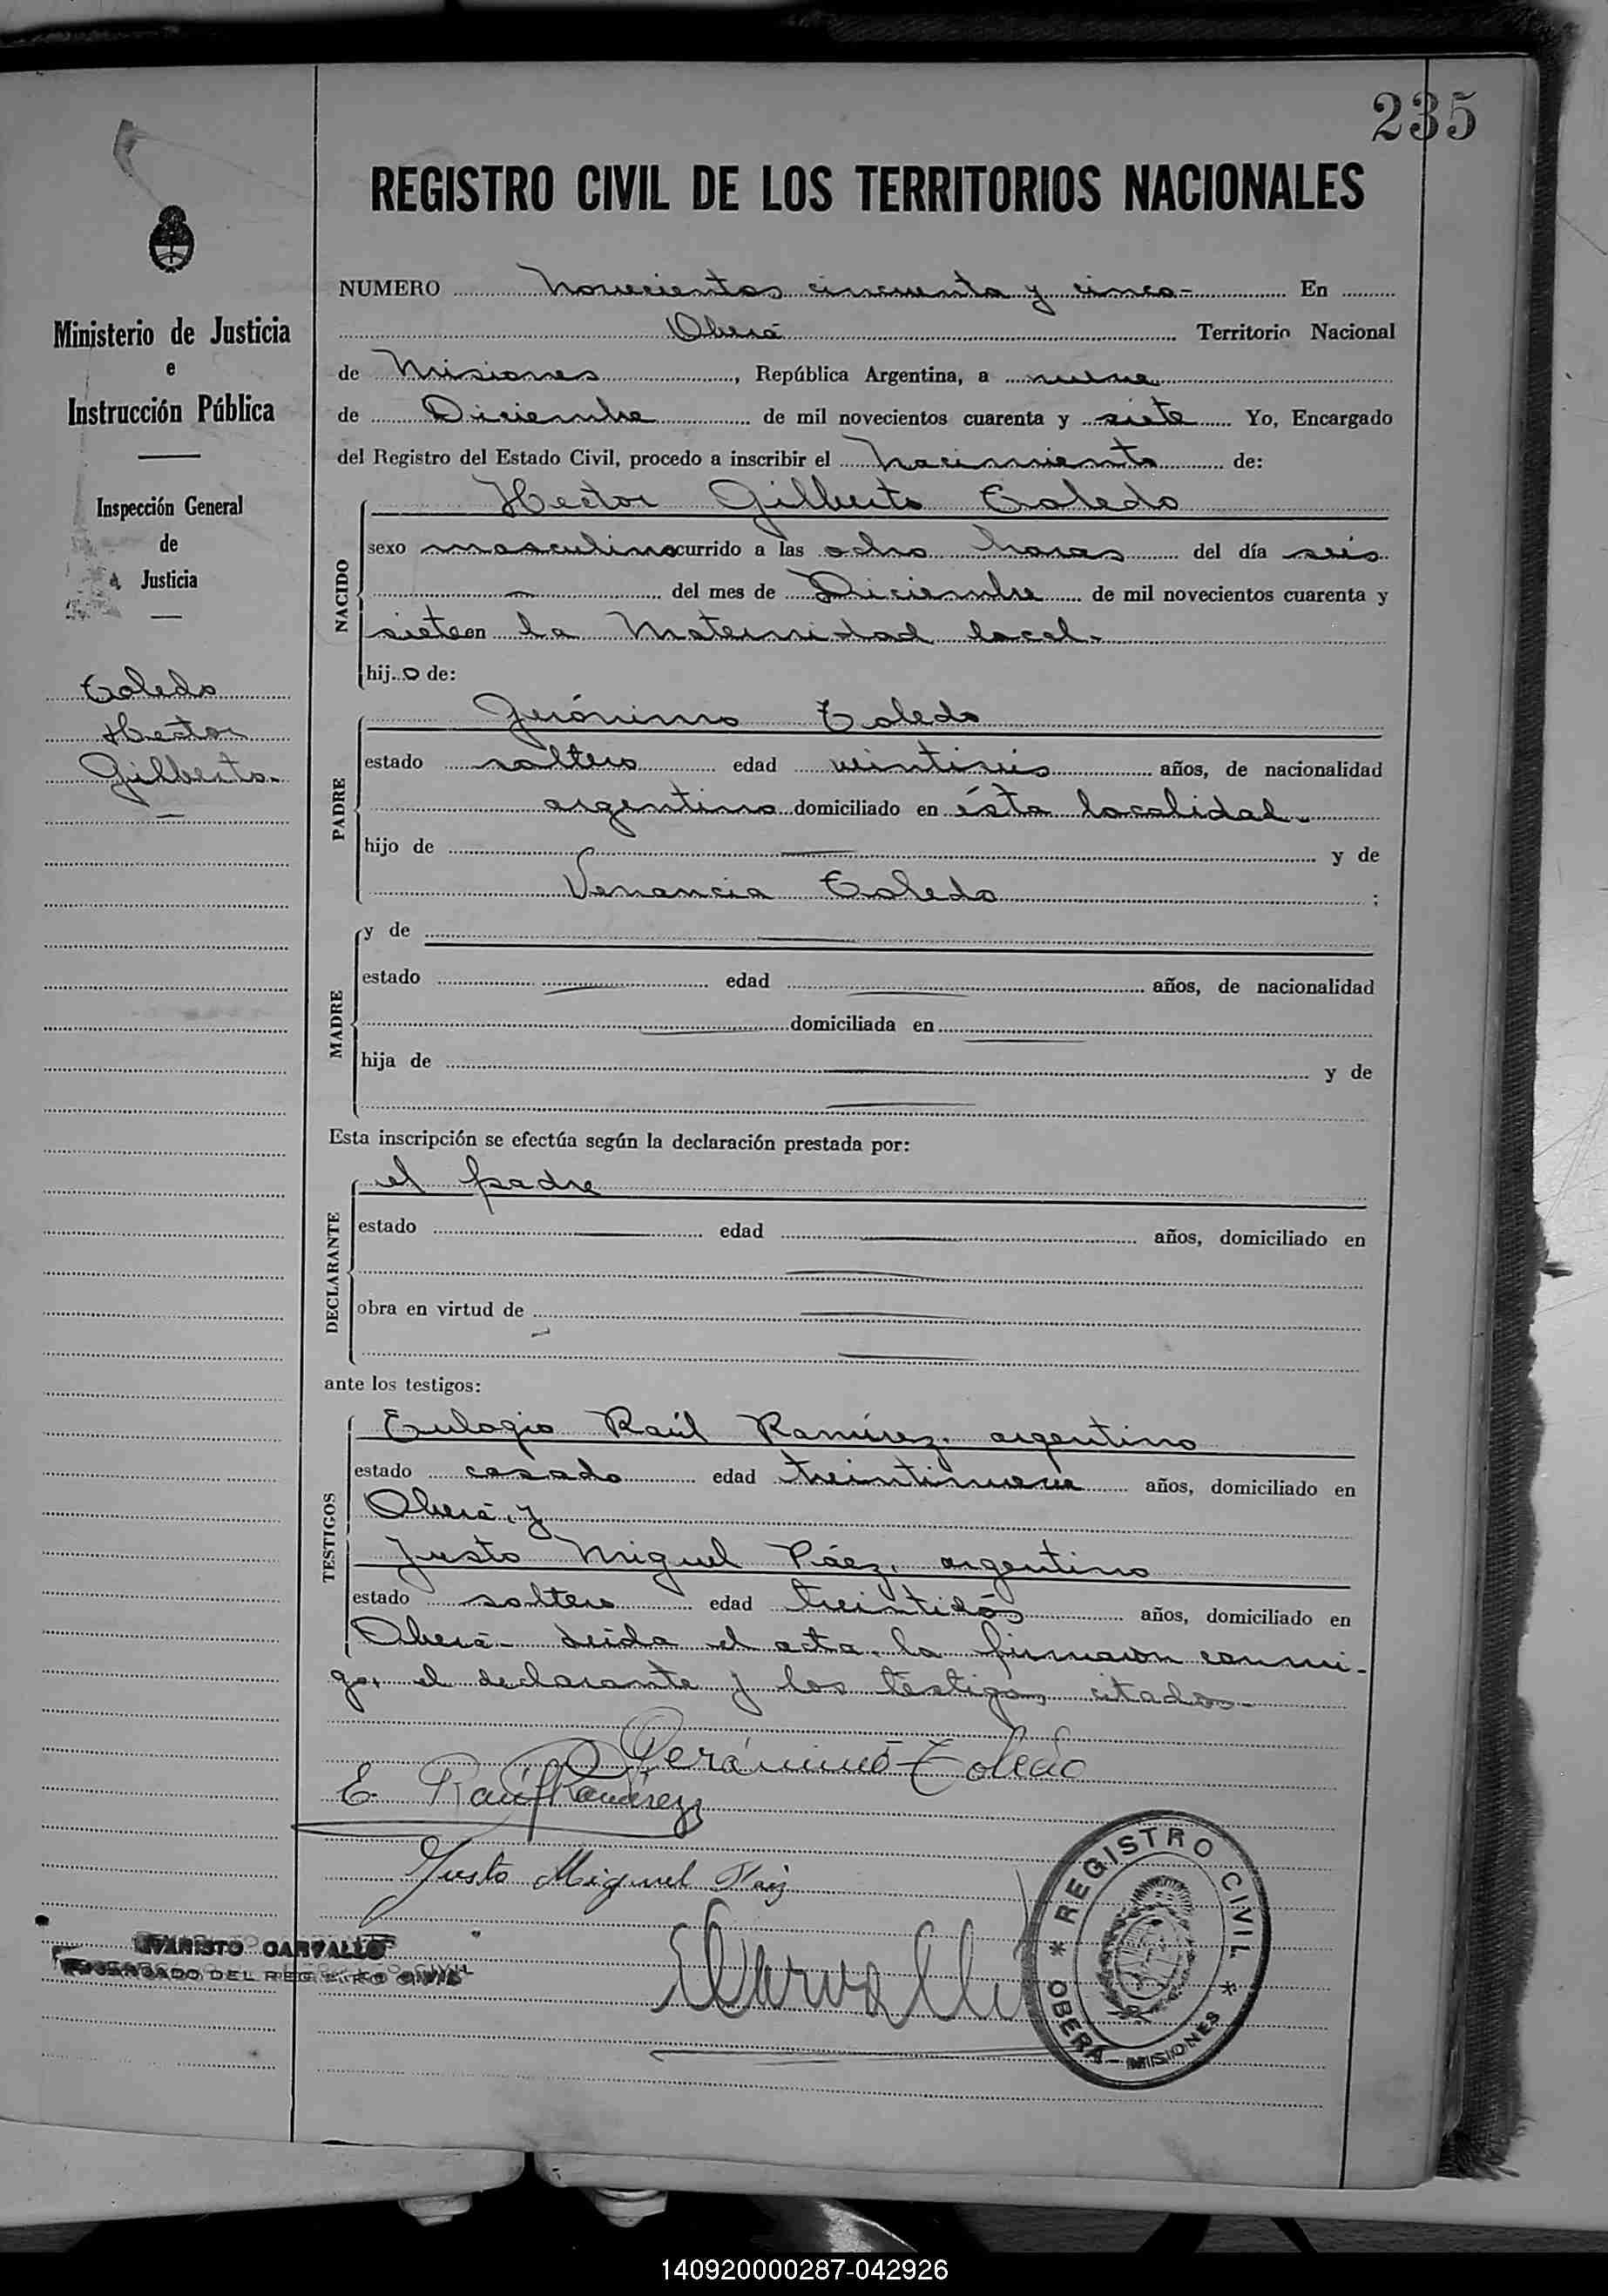 235
REGISTRO CIVIL DE LOS TERRITORIOS NACIONALES
Ministerio de Justicia
e
Instrucción Pública
Inspección General
de
Justicia
Toledo
Hector
Gilberto.
NUMERO novecientos cincuenta y cinco- En
Oberá Territorio Nacional
de Misiones, República Argentina, a nueve
de Diciembre de mil novecientos cuarenta y siete Yo, Encargado
del Registro del Estado Civil, procedo a inscribir el nacimiento de:
NACIDO
Hector Gilberto Toledo
sexo masculino ocurrido a las ocho horas del día seis
del mes de Diciembre de mil novecientos cuarenta y
siete en la Maternidad local.
hijo de:
PADRE
Jerónimo Toledo
estado soltero edad veintiseis años, de nacionalidad
argentino domiciliado en ésta localidad.
hijo de y de
Venancia Toledo ;
MADRE
y de
estado edad años, de nacionalidad
domiciliada en
hija de y de
Esta inscripción se efectúa según la declaración prestada por:
DECLARANTE
el padre
estado edad años, domiciliado en
obra en virtud de
ante los testigos:
TESTIGOS
Eulogio Raúl Ramírez, argentino
estado casado edad treintinueve años, domiciliado en
Oberá, y
Justo Miguel Páez, argentino
estado soltero edad treintidós años, domiciliado en
Oberá- Leida el acta, la firmaron conmi-
go, el declarante y los testigos citados-
Gerónimo Toledo
E. Raúl Ramírez
Justo Miguel Paez
ECarvallo
EVARISTO CARVALLO
ENCARGADO DEL REGISTRO CIVIL
* REGISTRO CIVIL *
OBERÁ - MISIONES
140920000287-042926